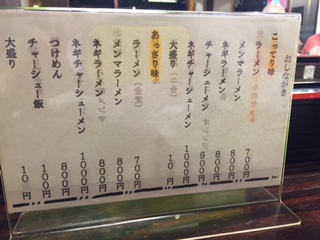 おしながき
こってり味
ラーメン 700円
メンマラーメン 800円
ネギラーメン 800円
チャーシューメン 900円
ネギチャーシューメン 1000円
大盛り
あっさり味
ラーメン 700円
メンマラーメン 800円
ネギラーメン 800円
ネギチャーシューメン 1000円
つけめん 800円
チャーシュー飯
大盛り